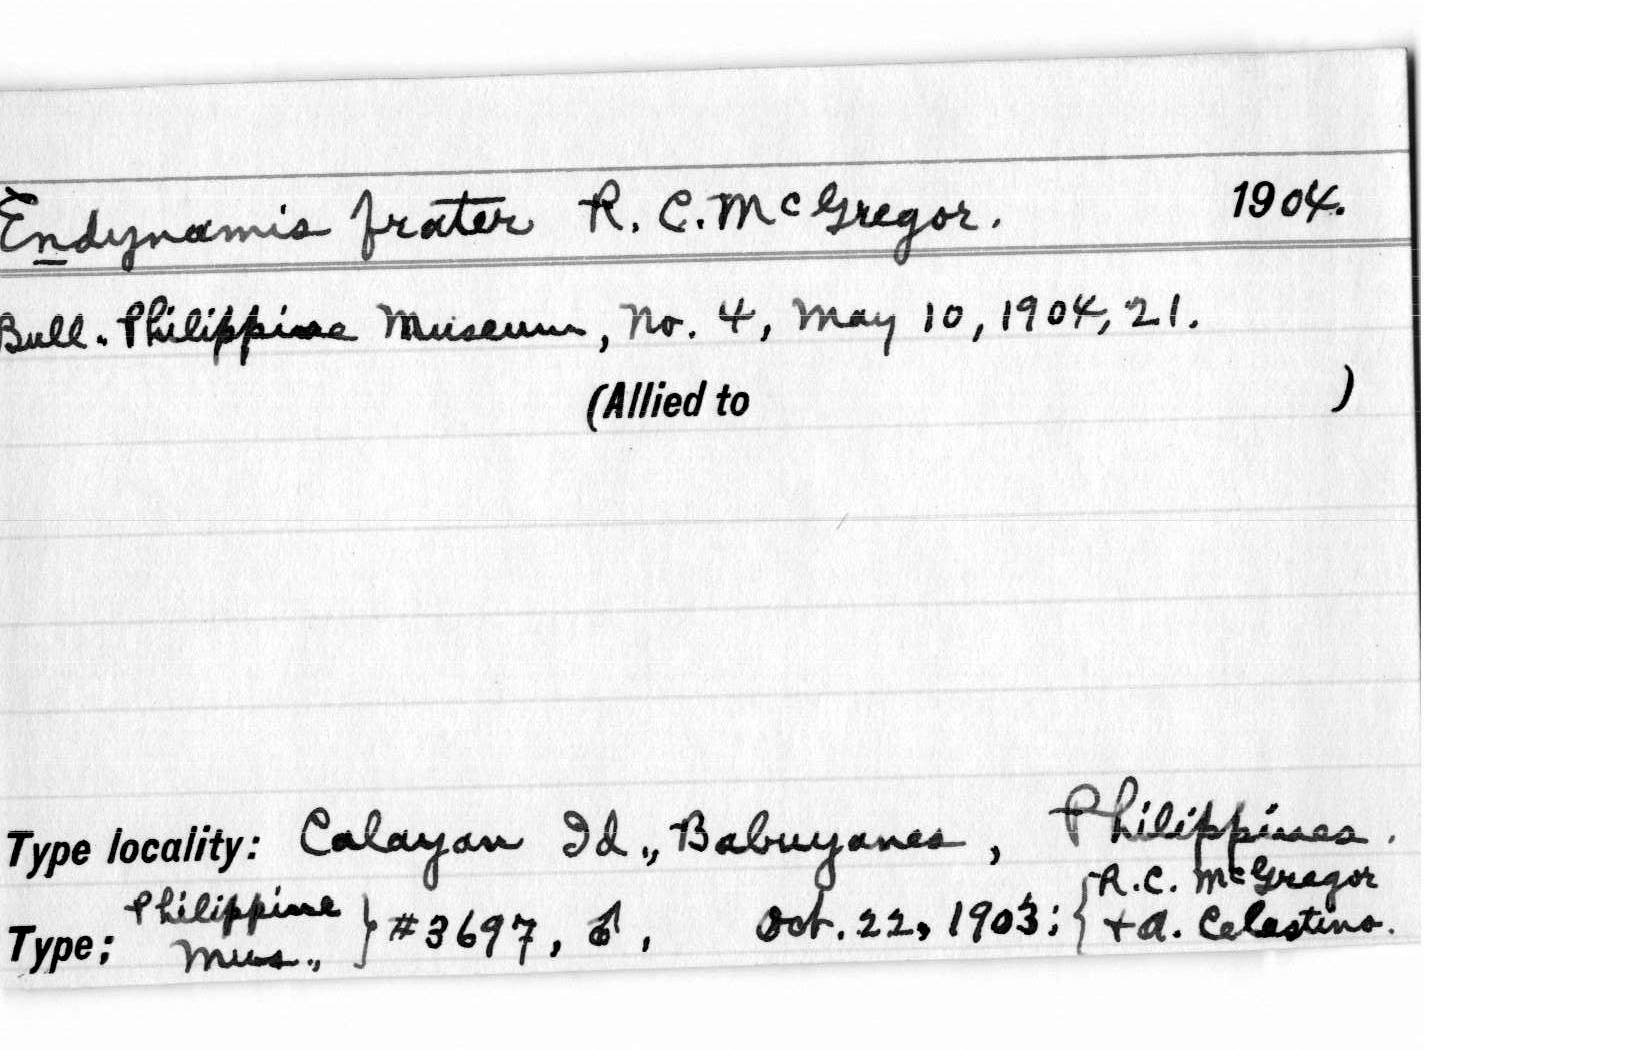 Endynamis frater R. C. McGregor. 1904.
Bull. Philippine Museum, No. 4, May 10, 1904, 21.
(Allied to )
Type locality: Calayan Id., Babuyanes, Philippines.
Type: Philippine Mus., } #3697, ♂, Oct. 22, 1903; { R. C. McGregor
+ A. Celestino.